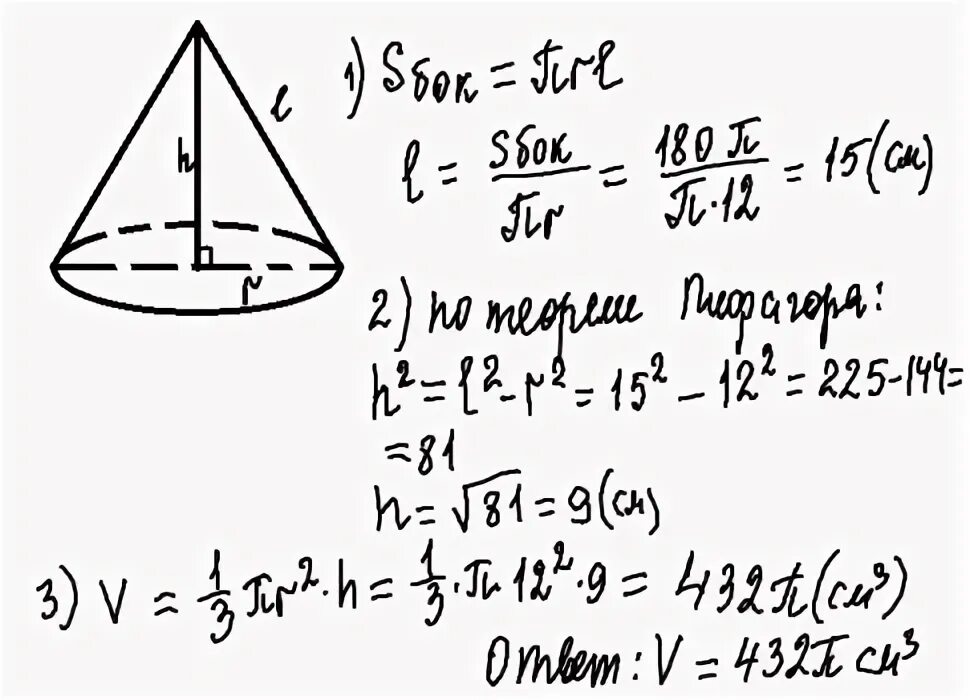 h
l
r
1) Sбок = πrl
l = Sбок/πr = 180π/π·12 = 15 (см)
2) по теореме Пифагора:
h² = l² - r² = 15² - 12² = 225 - 144 =
= 81
h = √81 = 9 (см)
3) V = 1/3 πr² · h = 1/3 · π · 12² · 9 = 432π (см³)
Ответ: V = 432π см³